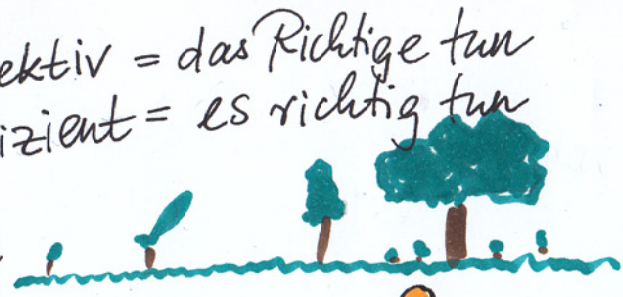 ektiv = das Richtige tun
izient = es richtig tun